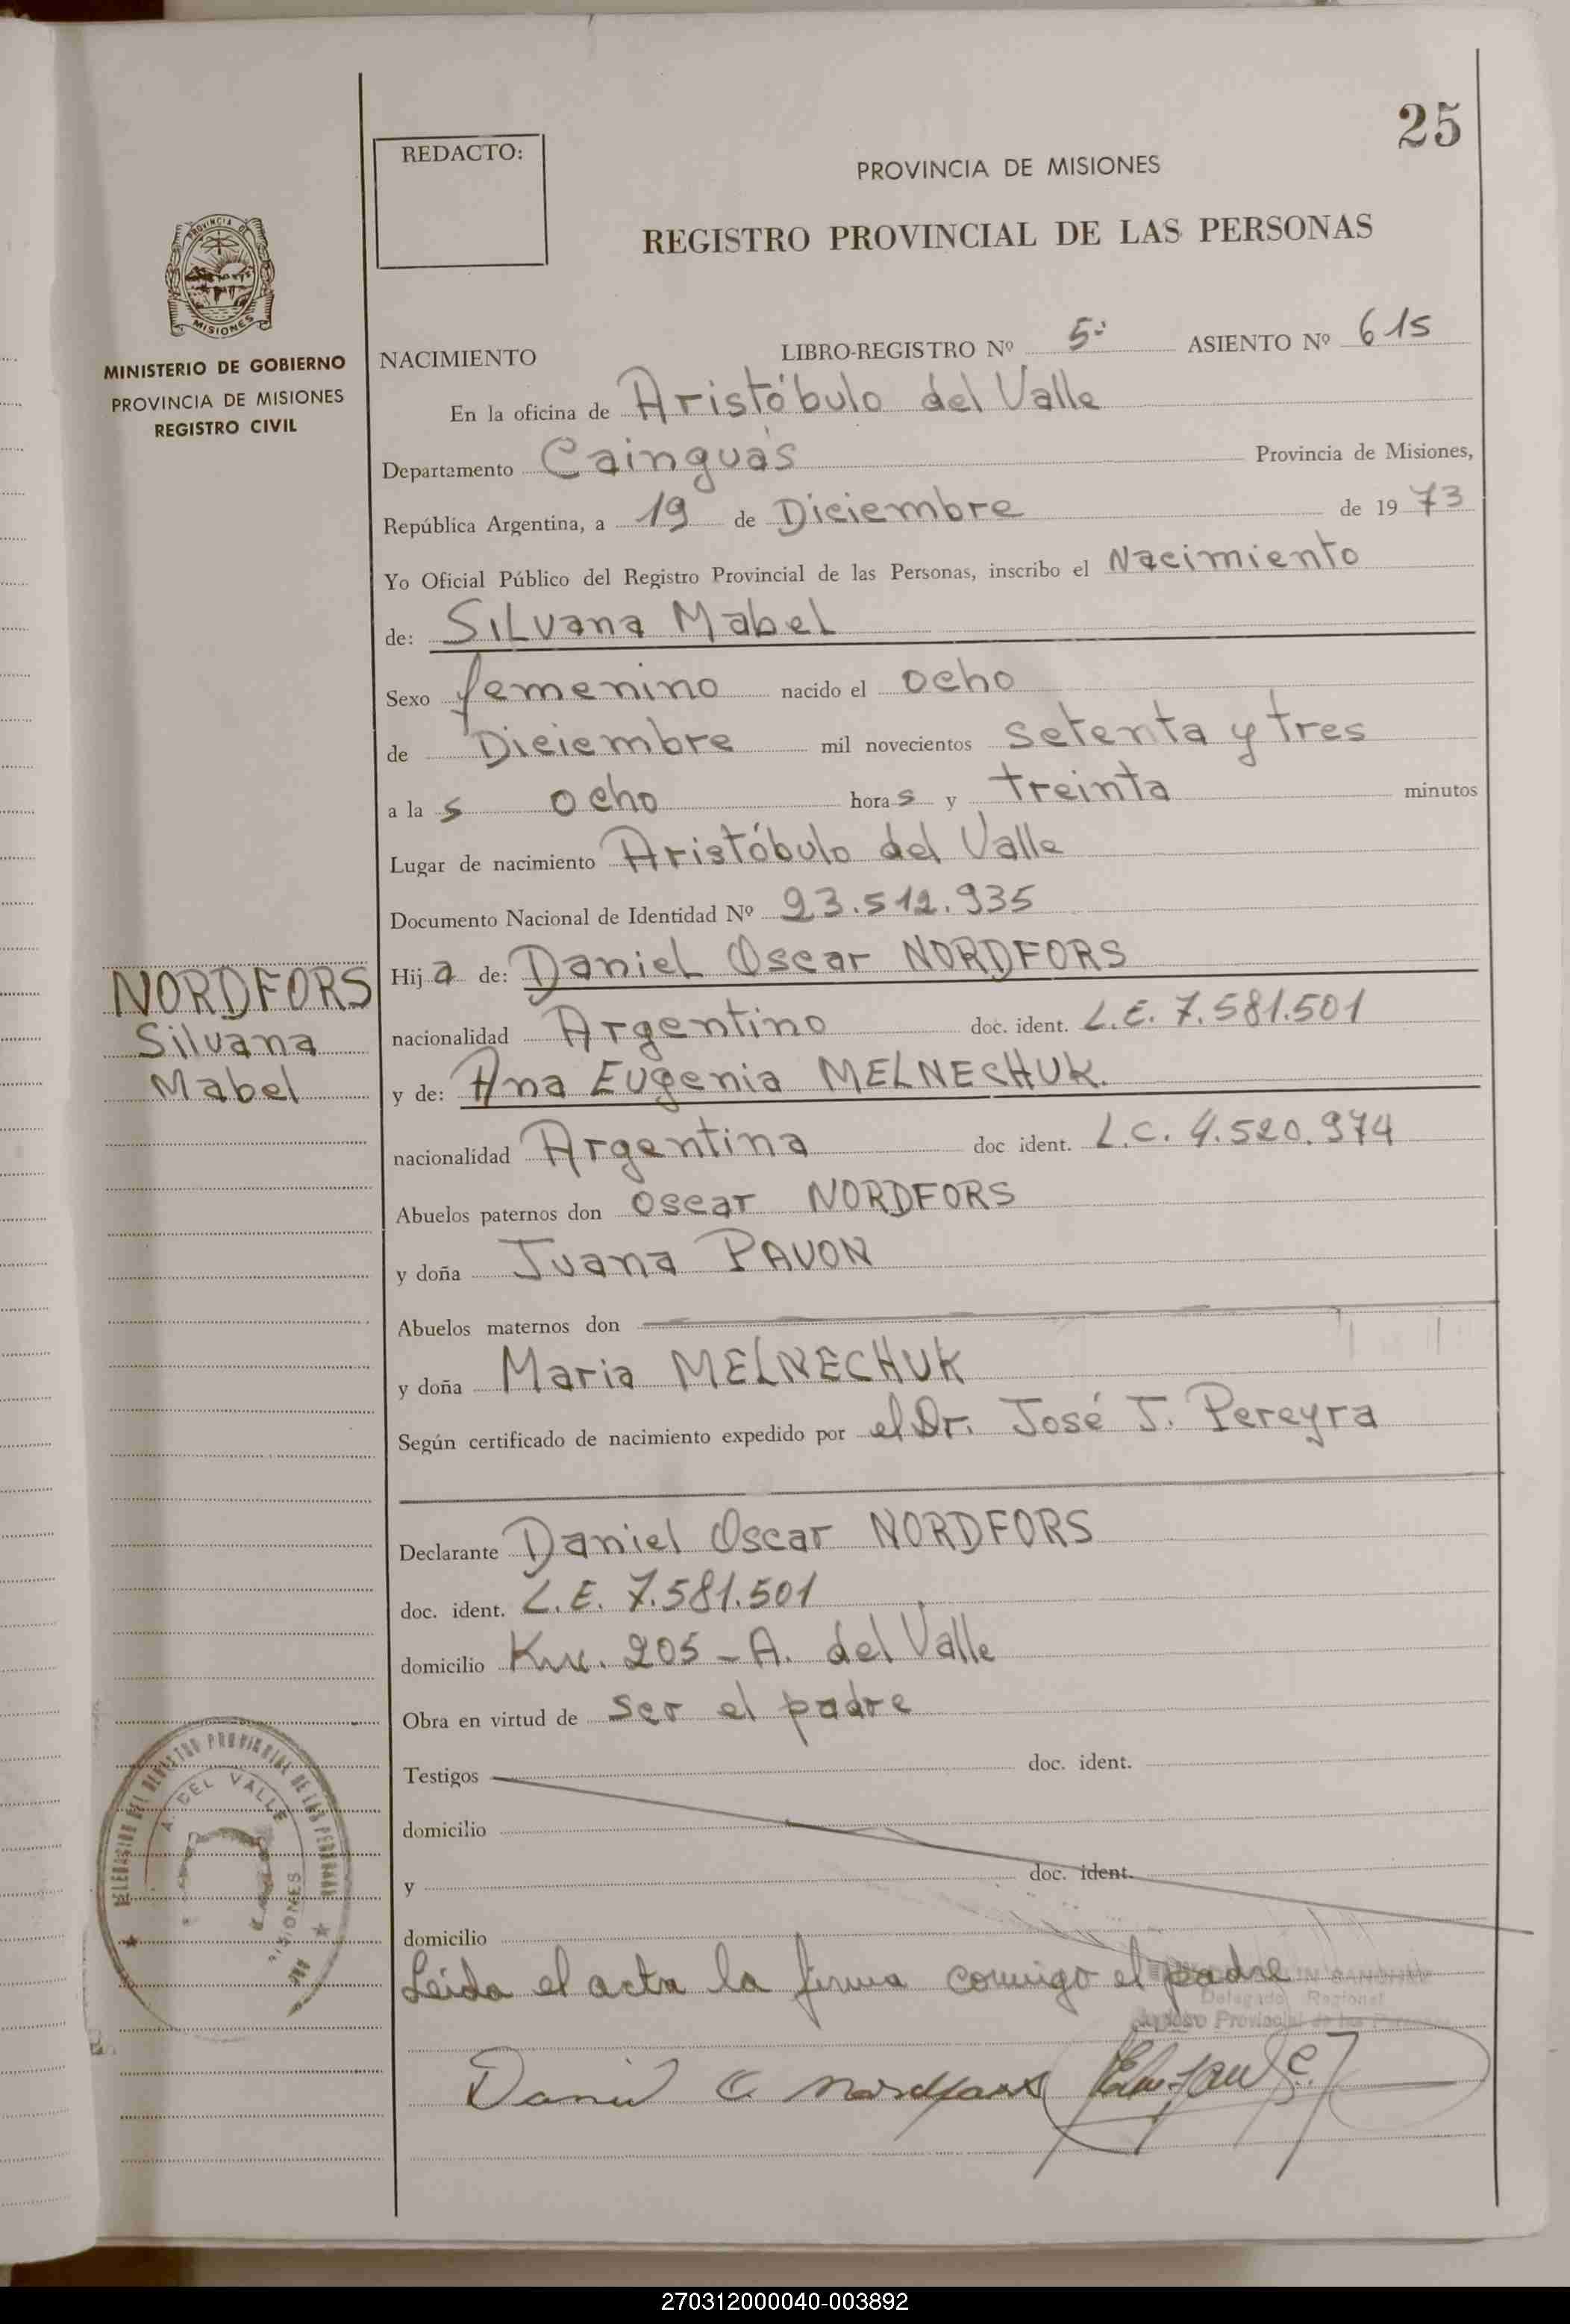 25
REDACTO:
PROVINCIA DE MISIONES
REGISTRO PROVINCIAL DE LAS PERSONAS
PROVINCIA DE
MISIONES
MINISTERIO DE GOBIERNO
PROVINCIA DE MISIONES
REGISTRO CIVIL
NACIMIENTO LIBRO-REGISTRO Nº 5º ASIENTO Nº 615
En la oficina de Aristóbulo del Valle
Departamento Cainguás Provincia de Misiones,
República Argentina, a 19 de Diciembre de 1973
Yo Oficial Público del Registro Provincial de las Personas, inscribo el Nacimiento
de: Silvana Mabel
Sexo femenino nacido el ocho
de Diciembre mil novecientos setenta y tres
a la s ocho hora s y treinta minutos
Lugar de nacimiento Aristóbulo del Valle
Documento Nacional de Identidad Nº 23.512.935
Hij a de: Daniel Oscar NORDFORS
NORDFORS
Silvana
Mabel
nacionalidad Argentino doc. ident. L.E. 7.581.501
y de: Ana Eugenia MELNECHUK.
nacionalidad Argentina doc ident. L.C. 4.520.974
Abuelos paternos don Oscar NORDFORS
y doña Juana PAVON
Abuelos maternos don
y doña Maria MELNECHUK
Según certificado de nacimiento expedido por el Dr. José J. Pereyra
Declarante Daniel Oscar NORDFORS
doc. ident. L.E. 7.581.501
domicilio Km. 205 - A. del Valle
Obra en virtud de ser el padre
Testigos doc. ident.
domicilio
y doc. ident.
domicilio
DELEGACION DEL REGISTRO PROVINCIAL DE LAS PERSONAS
A. DEL VALLE
MISIONES
Leida el acta la firma conmigo el padre
Delegado Regional
Registro Provincial de las Personas
Daniel O Nordfors
270312000040-003892